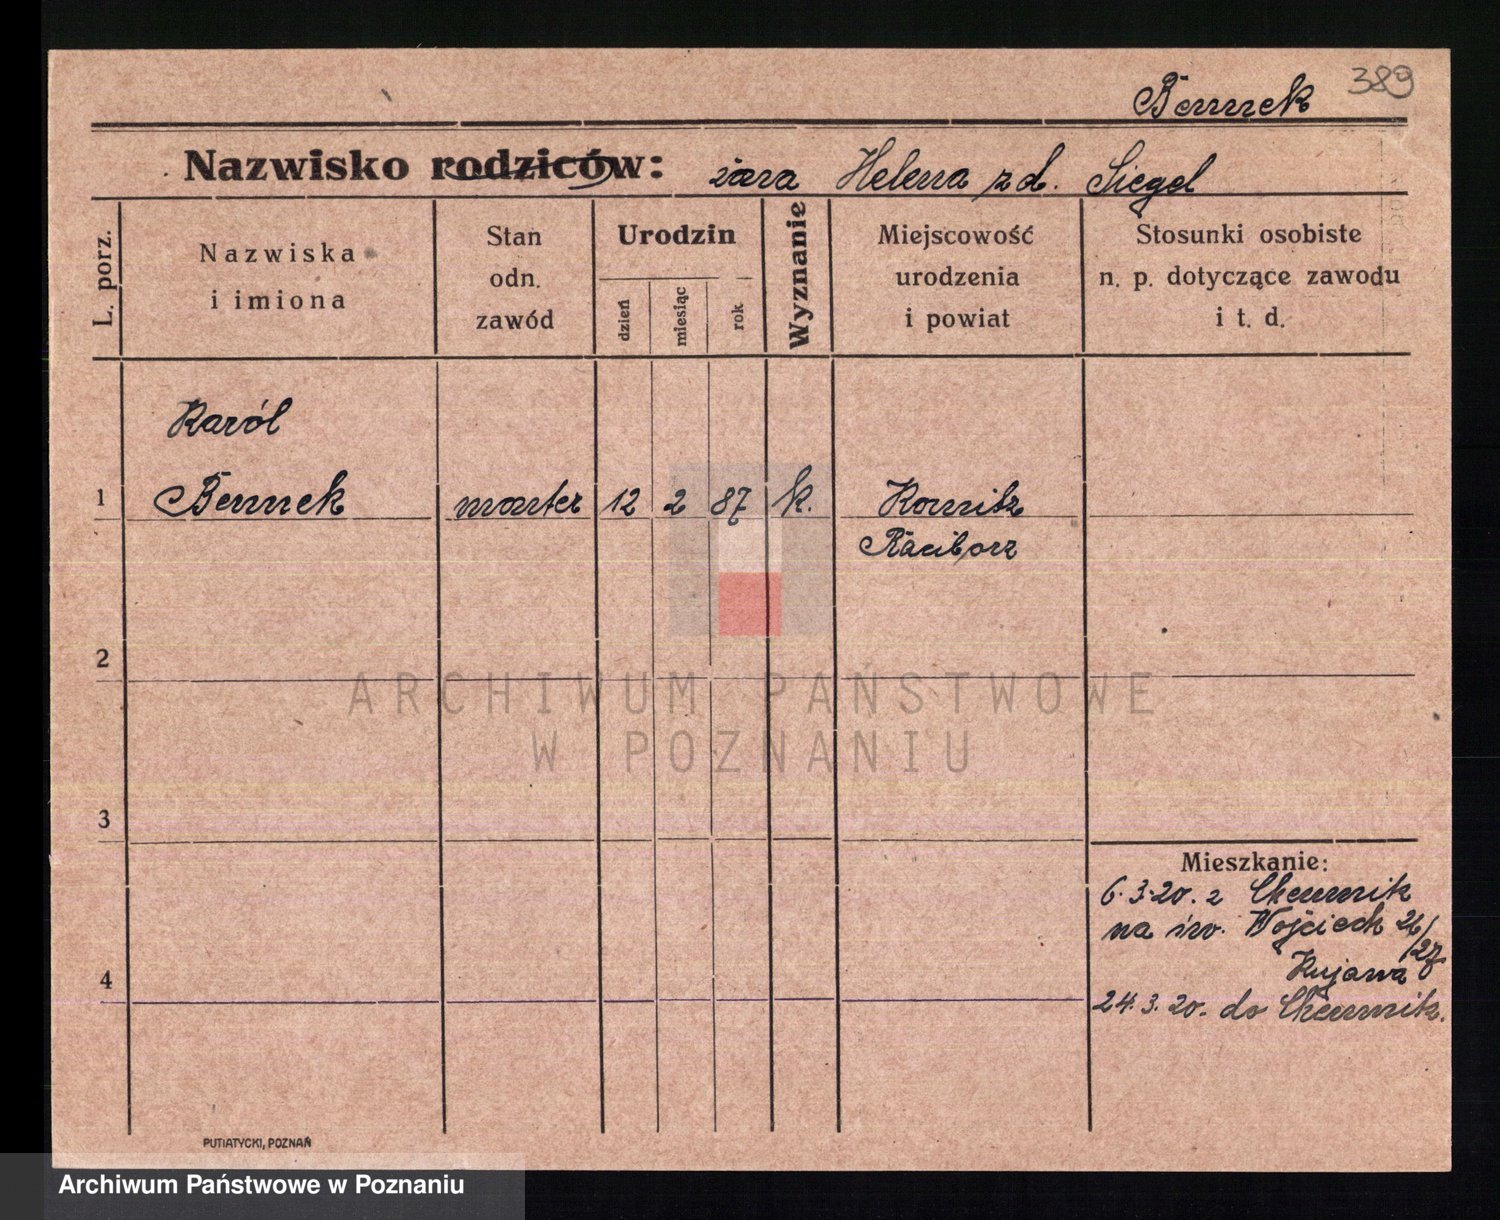 389
Bennek
Nazwisko rodziców: żona Helena zd. Siegel
L. porz.
Nazwiska
i imiona
Stan
odn.
zawód
Urodzin
dzień
miesiąc
rok
Wyznanie
Miejscowość
urodzenia
i powiat
Stosunki osobiste
n. p. dotyczące zawodu
i t. d.
Karól
1 Bennek monter 12 2 87 k.
Racibórz
2
ARCHIWUM PAŃSTWOWE
W POZNANIU
3
Mieszkanie:
6.3.20. z Chemnitz
na św. Wojciech 26/27
Kujawa
4
24.3.20. do Chemnitz.
PUTIATYCKI, POZNAŃ
Archiwum Państwowe w Poznaniu